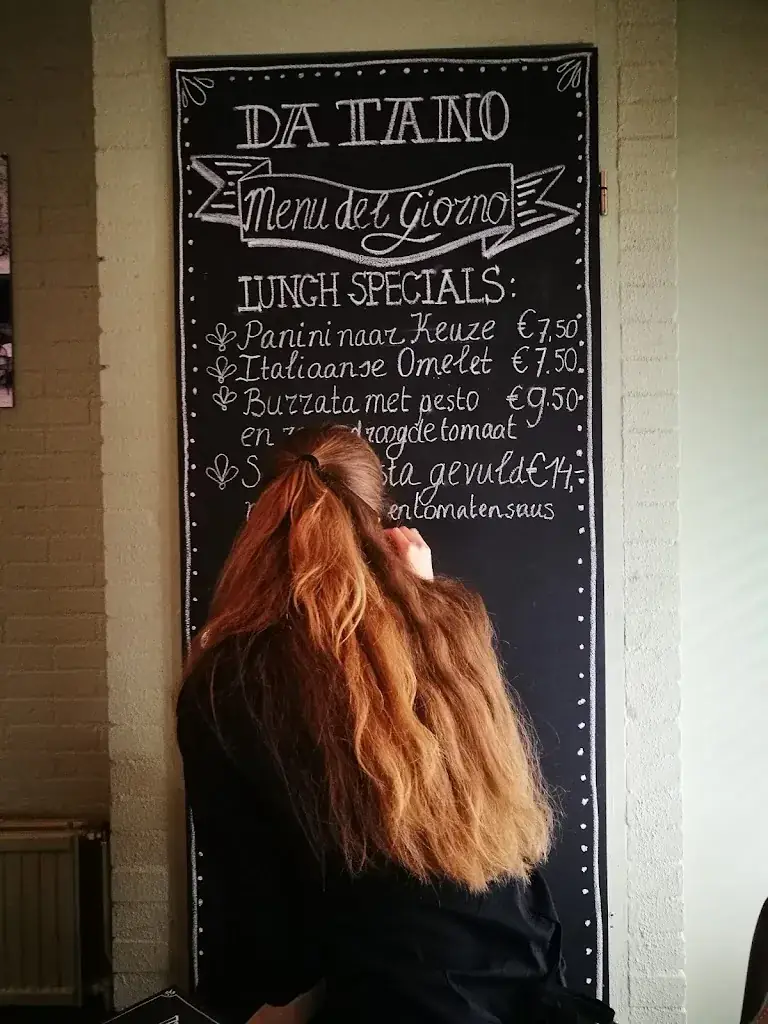 DA TANO
Menu del Giorno
LUNCH SPECIALS:
Panini naar Keuze €7,50
Italiaanse Omelet €7.50
Burrata met pesto €9.50
en droogde tomaat
gevuld €14,-
en tomatensaus